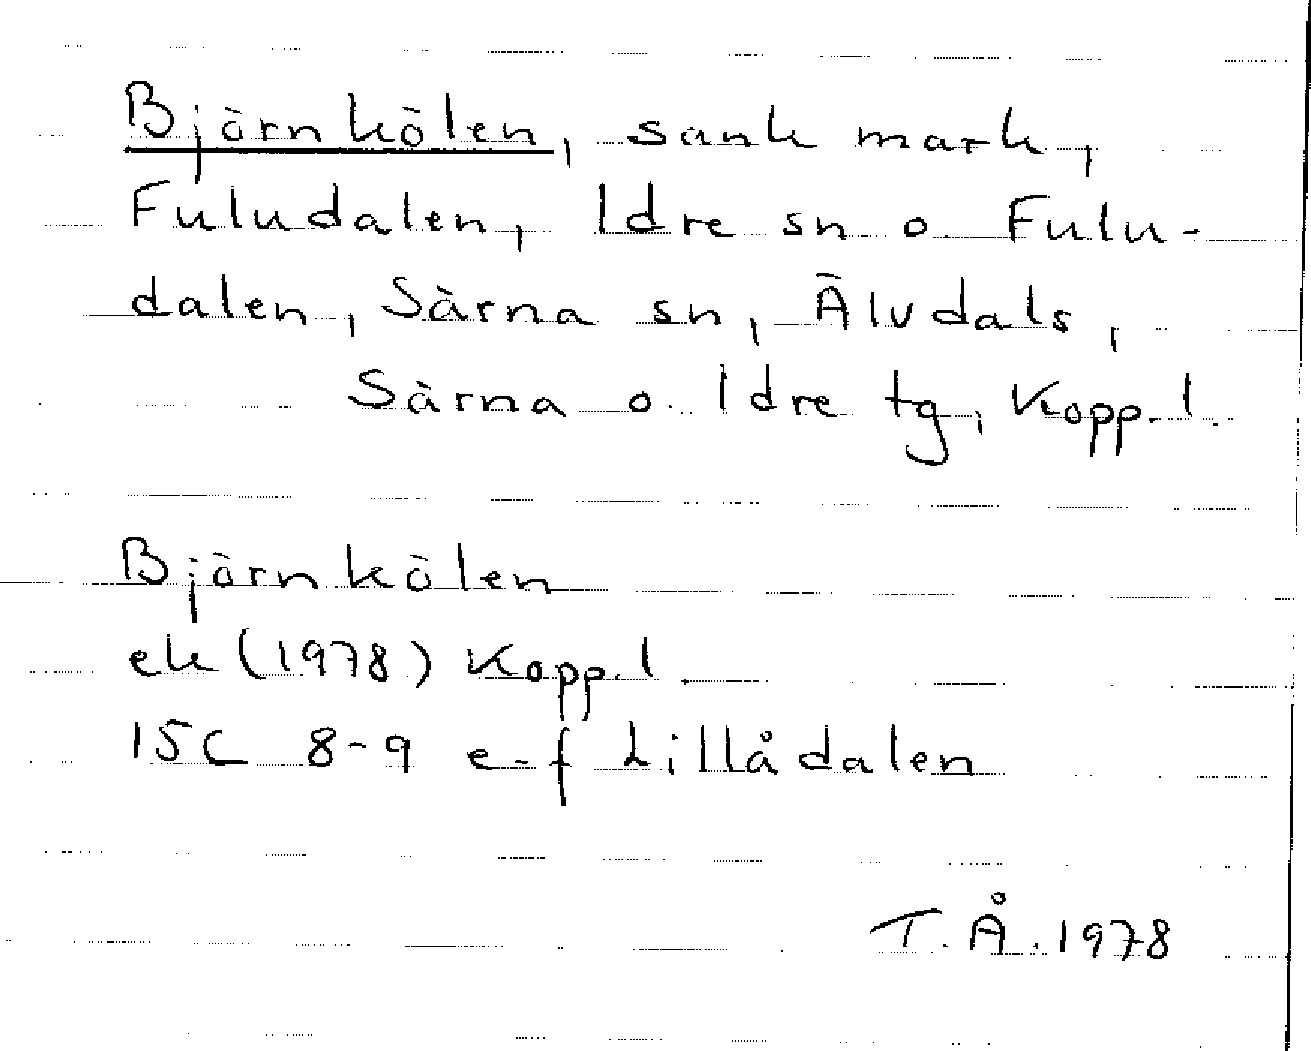 Björnkölen, sank mark,
Fuludalen, Idre sn o Fulu-
dalen, Särna sn, Älvdals,
Särna o. Idre tg, Kopp.l.
Björnkölen
ek (1978) Kopp.l
15C 8-9 e-f Lillådalen
T.Å. 1978